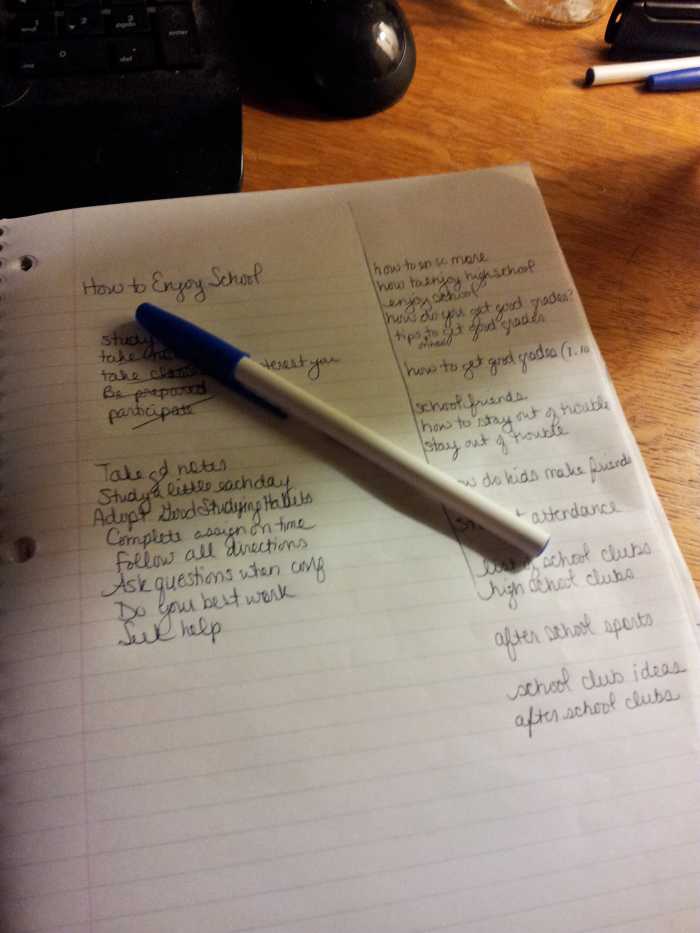 enter
How to Enjoy School
study
take
take interest you
Be prepared
participate
Take gd notes
Study a little each day
Adopt Good Studying Habits
Complete assign on time
Follow all directions
Ask questions when conf
Do your best work
Seek help
how to so more
how to enjoy high school
enjoy school
how do you get good grades?
tips to get good grades
how to get good grades (1.10
school friends
how to stay out of trouble
stay out of trouble
how do kids make friends
attendance
list of school clubs
high school clubs
after school sports
school club ideas
after school clubs